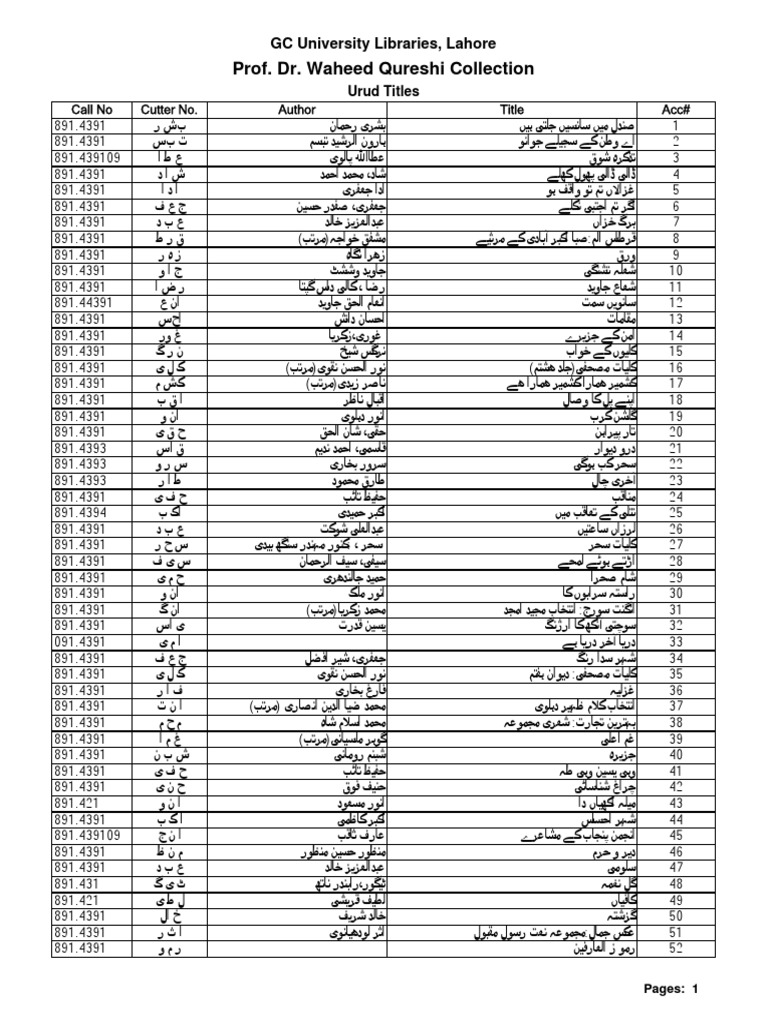 GC University Libraries, Lahore
Prof. Dr. Waheed Qureshi Collection
Urud Titles
Call No Cutter No. Author Title Acc#
891.4391 ب ش ر بشری رحمان صندل میں سانسیں جلتی ہیں 1
891.4391 ت ب س ہارون الرشید تبسم اے وطن کے سجیلے جوانو 2
891.439109 ع ط ا عطااللہ پالوی تذکرہ شوق 3
891.4391 ش ا د شاد، محمد احمد ڈالی ڈالی پھول کھلے 4
891.4391 ا د ا ادا جعفری غزالاں تم تو واقف ہو 5
891.4391 ج ع ف جعفری، صفدر حسین گر تم اجتبی نکلے 6
891.4391 ع ب د عبدالعزیز خالد برگ خزاں 7
891.4391 ق ر ط مشفق خواجہ (مرتب) قرطاس الم:صبا اکبر ابادی کے مرثیے 8
891.4391 ز ہ ر زھرا نگاہ ورق 9
891.4391 ج ا و جاوید وششٹ شعلہ تشنگی 10
891.4391 ر ض ا رضا ،کالی داس گپتا شعاع جاوید 11
891.44391 ا ن ع انعام الحق جاوید ساتویں سمت 12
891.4391 ا ح س احسان دانش مقامات 13
891.4391 غ و ر غوری،زکریا امن کے جزیرے 14
891.4391 ن ر گ نرگس شیخ کلیوں کے خواب 15
891.4391 ک ل ی نور الحسن نقوی(مرتب) کلیات مصحفی(جلد ھشتم) 16
891.4391 ک ش م ناصر زیدی(مرتب) کشمیر ھمارا کشمیر ھمارا ھے 17
891.4391 ا ق ب اقبال ناظر اپنے پل کا وصال 18
891.4391 ا ن و انور دہلوی گلشن کرب 19
891.4391 ح ق ی حقی، شان الحق تار پیراہن 20
891.4393 ق ا س قاسمی، احمد ندیم درو دیوار 21
891.4393 س ر و سرور بخاری سحر کب ہوگی 22
891.4393 ط ا ر طارق محمود اخری چال 23
891.4391 ح ف ی حفیظ تائب مناقب 24
891.4394 ا ک ب اکبر حمیدی تتلی کے تعاقب میں 25
891.4391 ع ب د عبدالعلی شوکت لرزاں ساعتیں 26
891.4391 س ح ر سحر ، کنور مہندر سنگھ بیدی کلیات سحر 27
891.4391 س ی ف سیفی، سیف الرحمان اڑتے ہوئے لمحے 28
891.4391 ح م ی حمید جالندھری شام صحرا 29
891.4391 ا ن و انور ملک راستہ سرابوں کا 30
891.4391 ا ن گ محمد زکریا(مرتب) انگنت سورج: انتخاب مجید امجد 31
891.4391 ی ا س یسین قدرت سوچتی انکھ کا ارژنگ 32
091.4391 ا م ی دریا اخر دریا ہے 33
891.4391 ج ع ف جعفری، شیر افضل شہر سدا رنگ 34
891.4391 ک ل ی نور الحسن نقوی کلیات مصحفی: دیوان ہفتم 35
891.4391 ف ا ر فارغ بخاری غزلیہ 36
891.4391 ا ن ت محمد ضیا الدین انصاری (مرتب) انتخاب کلام ظہیر دہلوی 37
891.4391 م ح م محمد اسلام شاہ بہترین تجارت: شعری مجموعہ 38
891.4391 غ م ا گوہر ملسیانی(مرتب) غم اعلی 39
891.4391 ش ب ن شبنم رومانی جزیرہ 40
891.4391 ح ف ی حفیظ تائب وہی یسین وہی طہ 41
891.4391 ح ن ی حنیف فوق چراغ شناسائی 42
891.421 ا ن و انور مسعود میلہ اکھیاں دا 43
891.4391 ا ک ب اکبر کاظمی شہر احساس 44
891.439109 ا ن ج عارف ثاقب انجمن پنجاب کے مشاعرے 45
891.4391 م ن ظ منظور حسین منظور دیر و حرم 46
891.4391 ع ب د عبدالعزیز خالد سلومی 47
891.431 ٹ ی گ ٹیگور،رابندر ناتھ گل نغمہ 48
891.421 ل ط ی لطیف قریشی کافیاں 49
891.4391 خ ا ل خالد شریف گزشتہ 50
891.4391 ا ث ر اثر لودھیانوی عکس جمال:مجموعہ نعت رسول مقبول 51
891.4391 ر م و رموز العارفین 52
Pages: 1